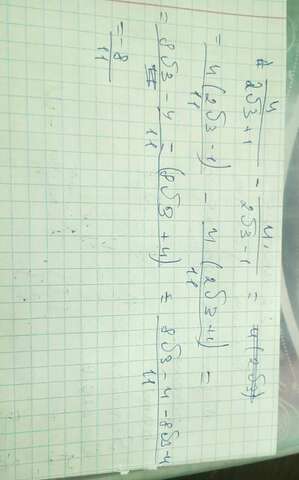 4/(2√3+1) - 4/(2√3-1) =
= 4(2√3-1)/11 - 4(2√3+1)/11 =
= (8√3-4-(8√3+4))/11 = (8√3-4-8√3-4)/11
= -8/11